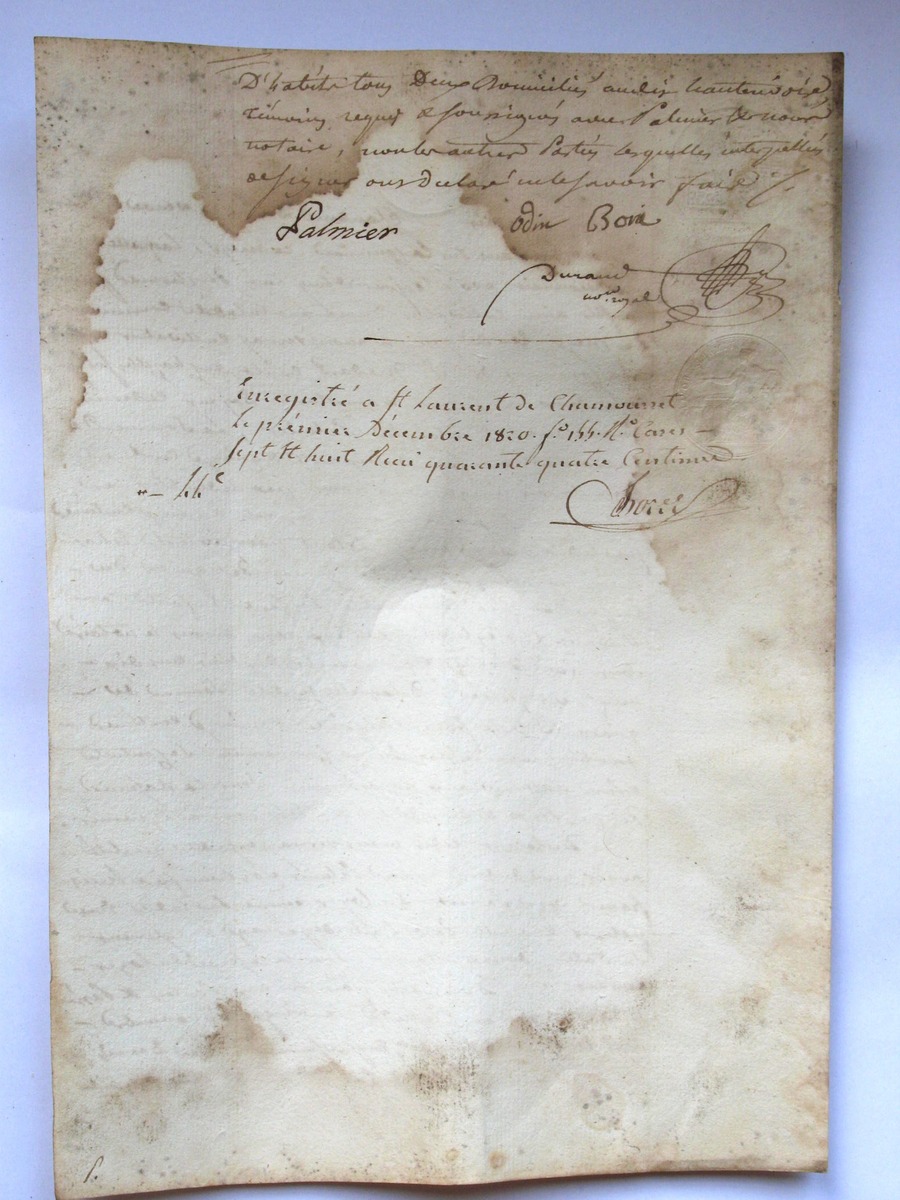 D'habits tous Deux Domiciliés audit hauterivoire
témoins requis & soussignés avec Palmier & nous
notaire, non les autres Parties lesquelles interpellés
de signer ont Declaré ne le Savoir faire
Palmier Odin Boin
Durand
no.re royal
Enregistré a St Laurent de Chamousset
le prémier Décembre 1820. f.o 155. R.o Cases
Sept et huit Reçu quarante quatre Centimes
44 c